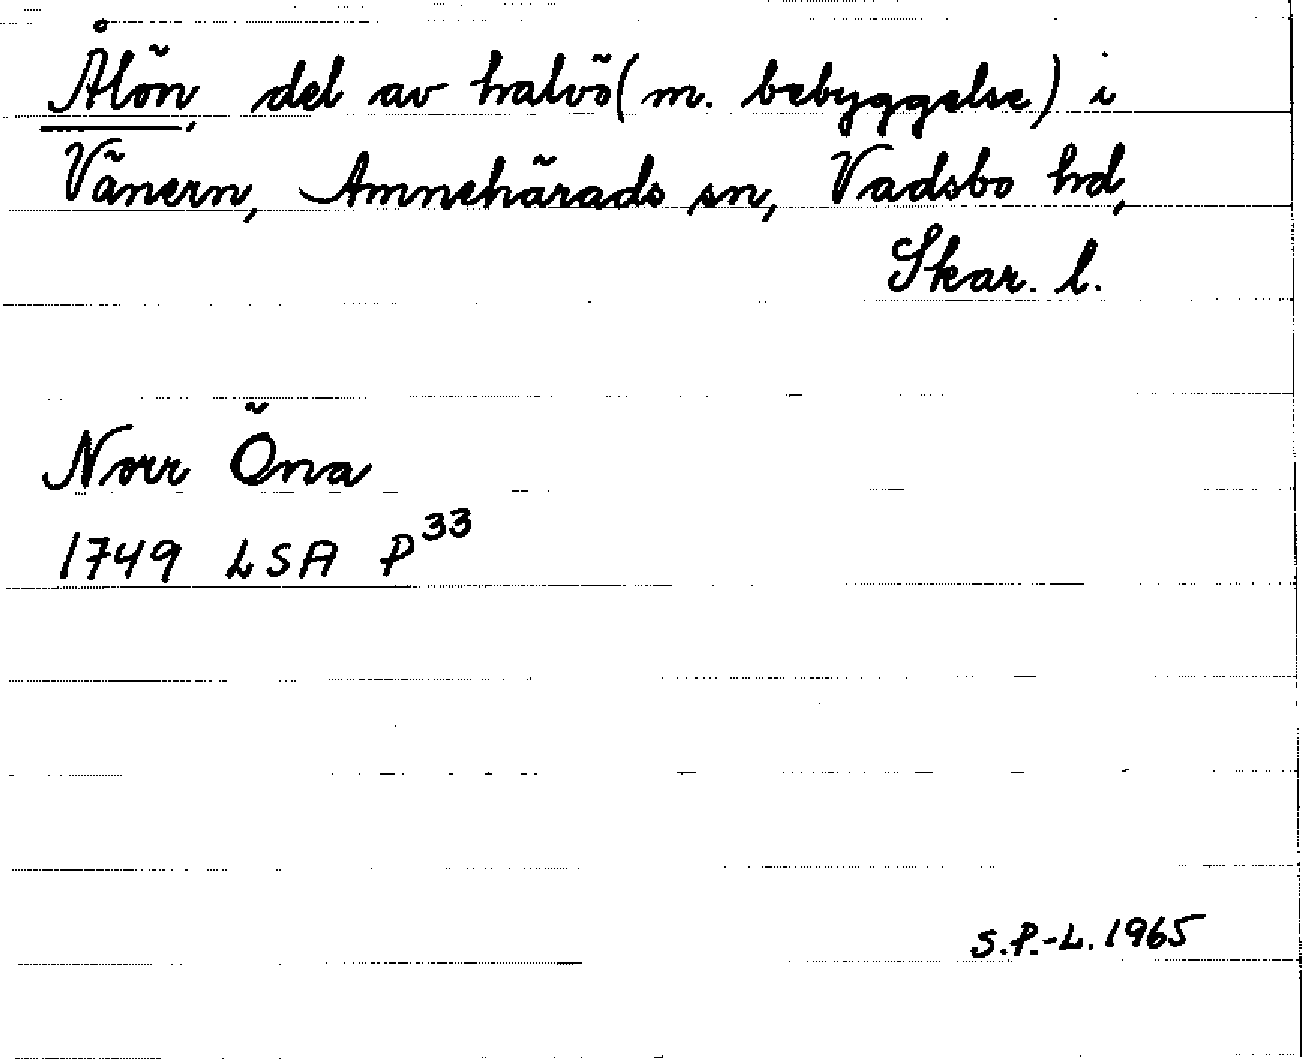 Ålön, del av halvö (m. bebyggelse) i
Vänern, Amnehärads sn, Vadsbo hd,
Skar. l.
Norr Öna
1749 LSA P33
S.P.-L. 1965